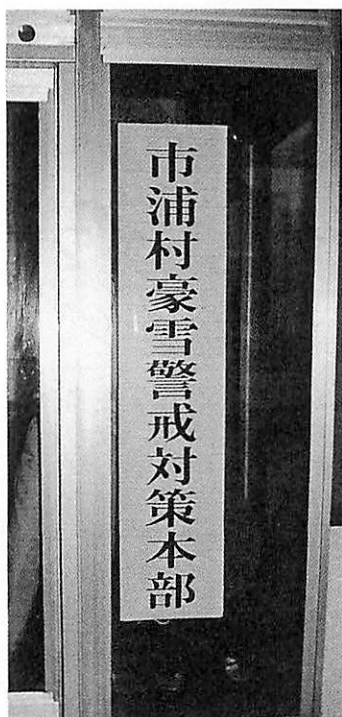 市浦村豪雪警戒対策本部